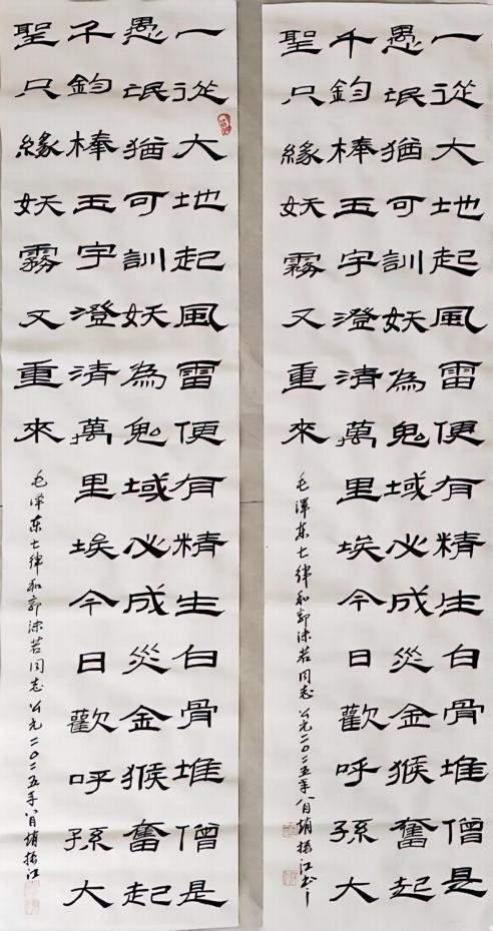 一從大地起風雷便有精生白骨堆僧是
愚氓猶可訓妖為鬼域必成災金猴奮起
千鈞棒玉宇澄清萬里埃今日歡呼孫大
聖只緣妖霧又重來
毛澤东七律和郭沫若同志公元二〇二五年八月
一從大地起風雷便有精生白骨堆僧是
愚氓猶可訓妖為鬼域必成災金猴奮起
千鈞棒玉宇澄清萬里埃今日歡呼孫大
聖只緣妖霧又重來
毛澤东七律和郭沫若同志公元二〇二五年八月